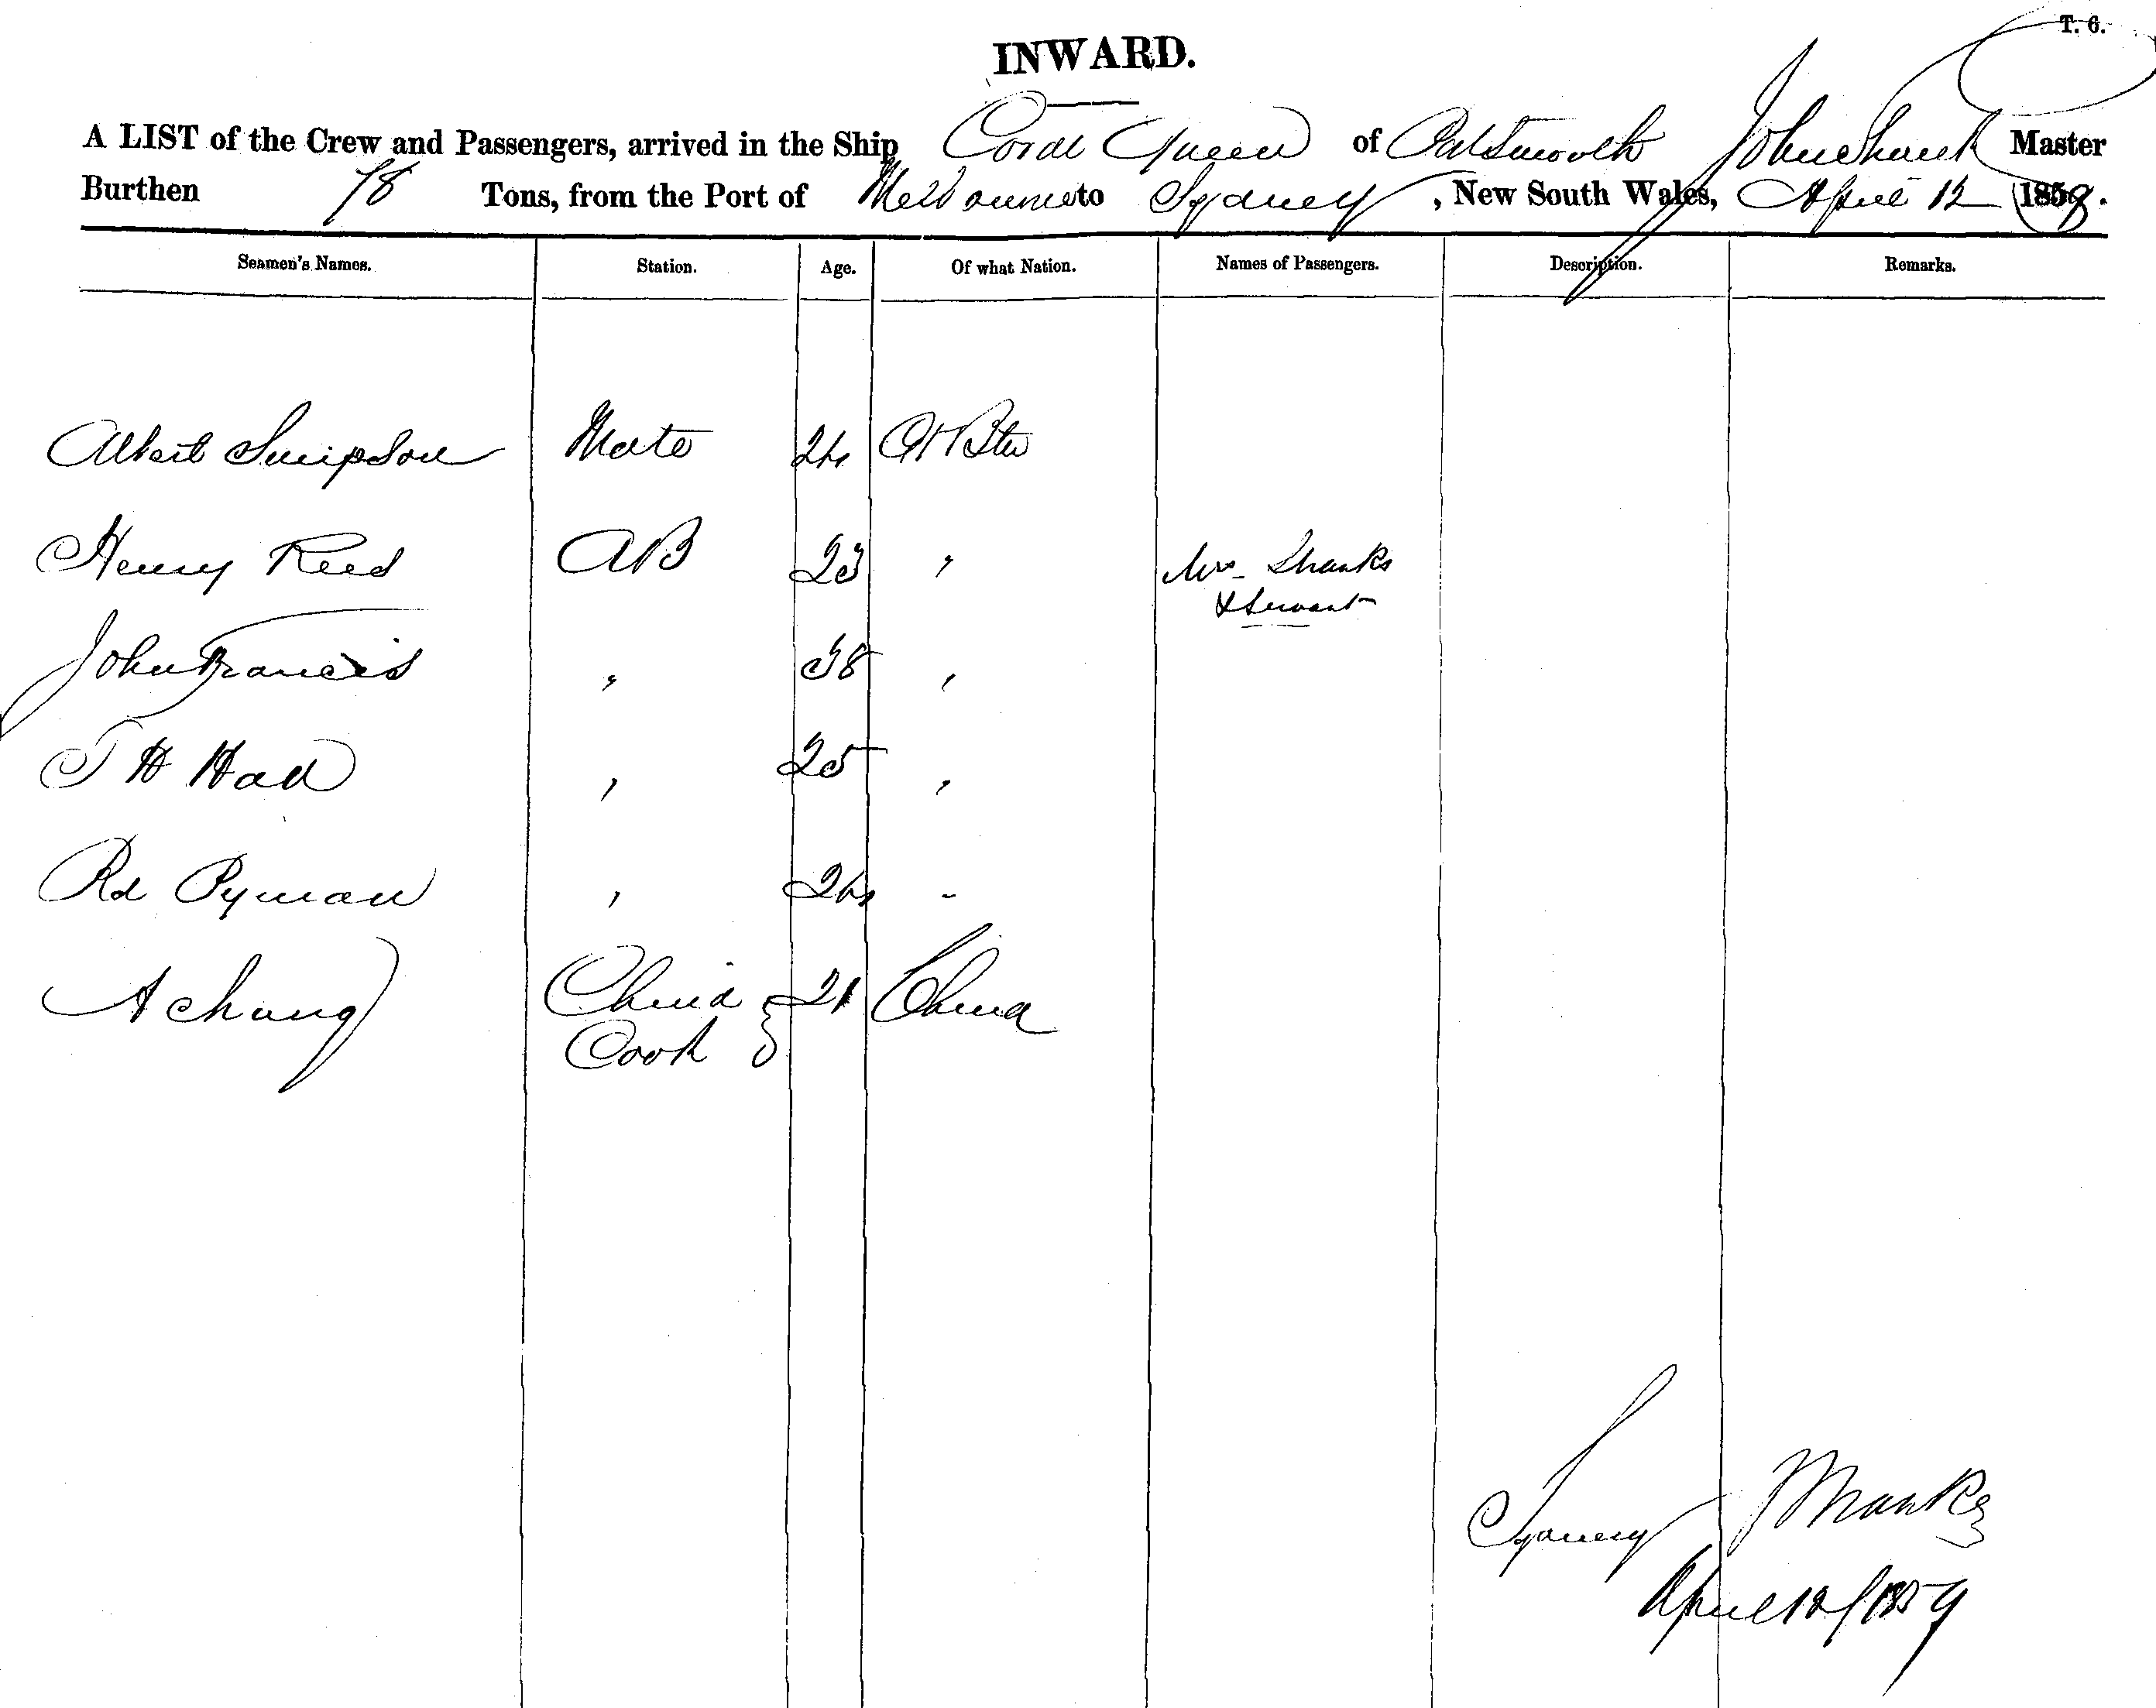 T. 6.
INWARD.
A LIST of the Crew and Passengers, arrived in the Ship Coral Queen of Portsmouth John Shank Master
Burthen 78 Tons, from the Port of Melbourne to Sydney, New South Wales, April 12 1859.
Seamen's Names. Station. Age. Of what Nation. Names of Passengers. Description. Remarks.
Albert Simpson Mate 24
Henry Reed AB 23 " Mrs Shanks
& Servant
John Francis " 38 "
T H Hall " 25 "
Rd Pyman " 24 "
Achung China 21 China
Cook
Sydney JShanks
April 12/1859